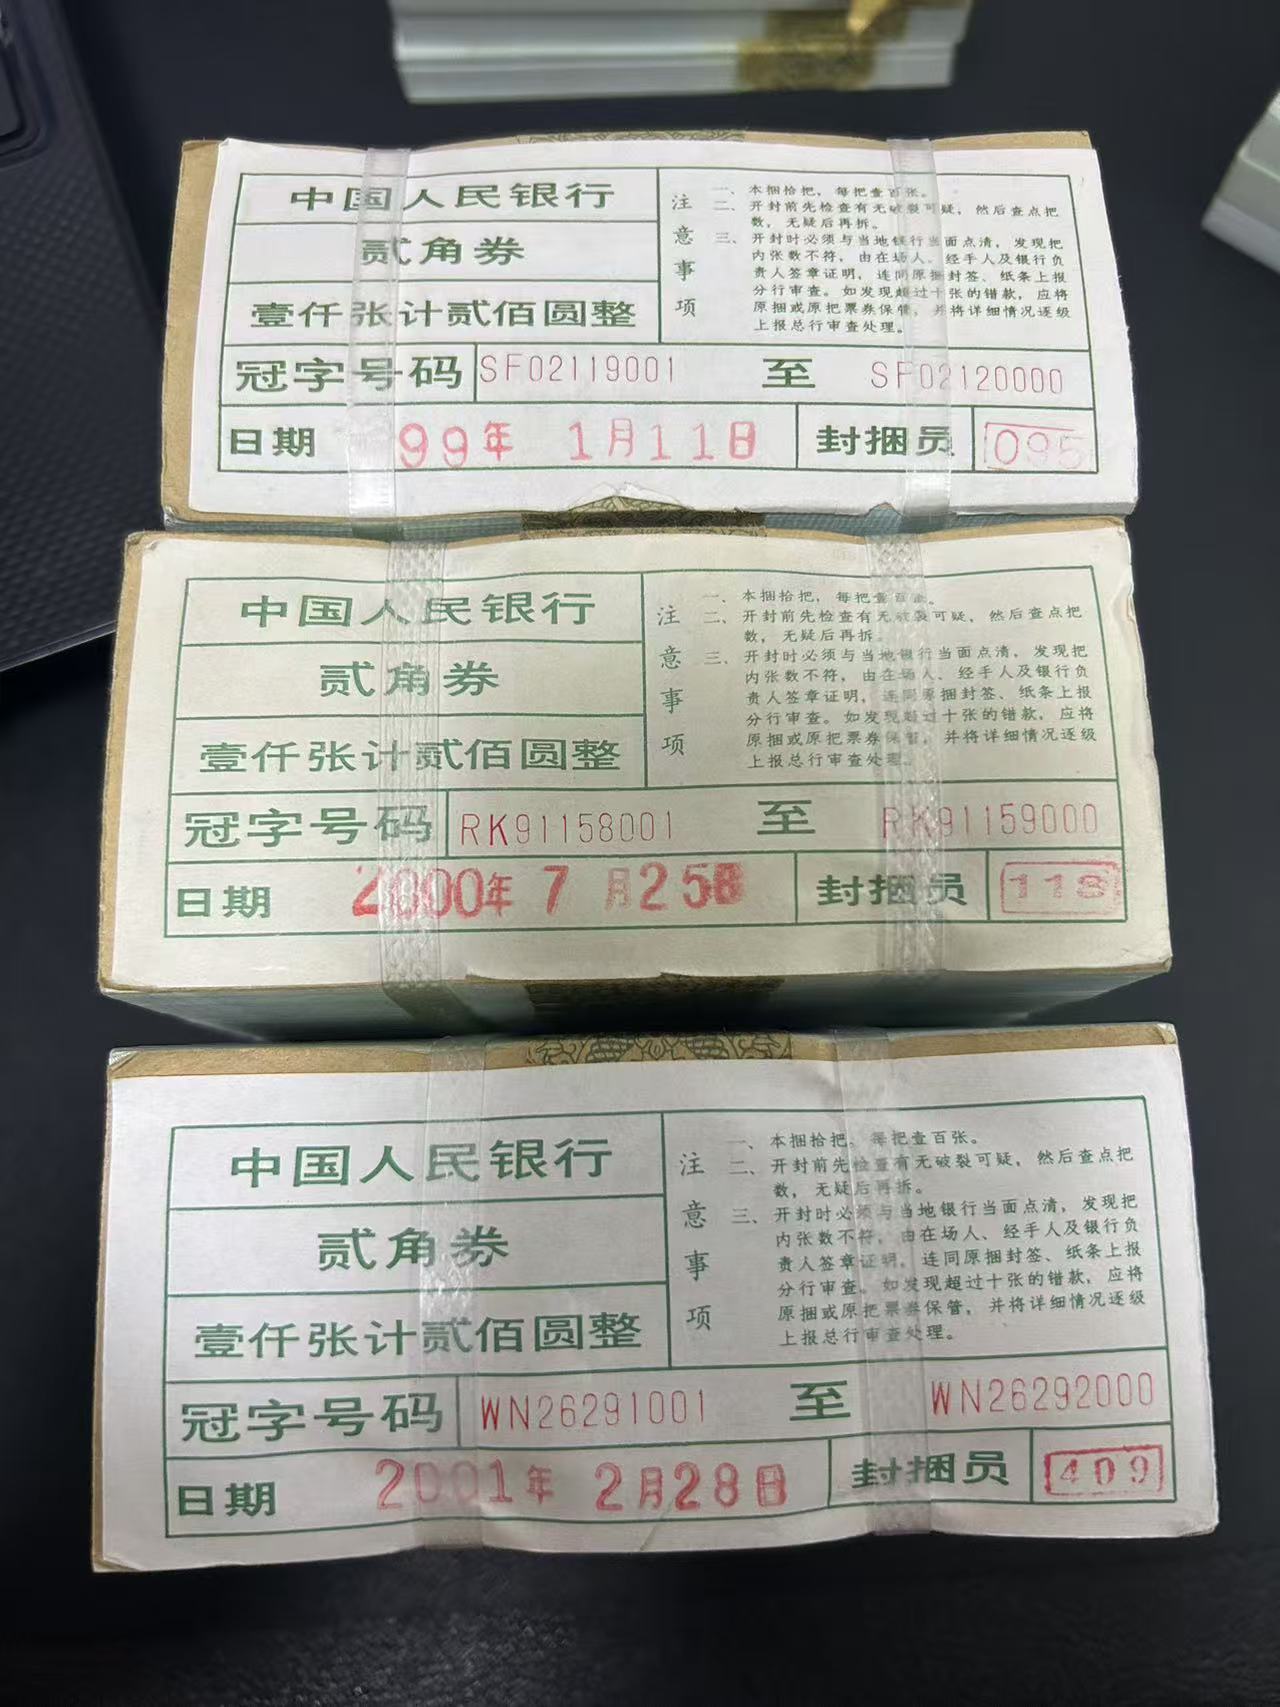 中国人民银行
贰角券
壹仟张计贰佰圆整
注意事项
一、本捆拾把，每把壹百张。
二、开封前先检查有无破裂可疑，然后查点把
数，无疑后再拆。
三、开封时必须与当地银行当面点清，发现把
内张数不符，由在场人、经手人及银行负
责人签章证明，连同原捆封签、纸条上报
分行审查。如发现超过十张的错款，应将
原捆或原把票券保管，并将详细情况逐级
上报总行审查处理。
冠字号码 SF02119001 至 SF02120000
日期 99年 1月11日 封捆员 095
中国人民银行
贰角券
壹仟张计贰佰圆整
注意事项
一、本捆拾把，每把壹百张。
二、开封前先检查有无破裂可疑，然后查点把
数，无疑后再拆。
三、开封时必须与当地银行当面点清，发现把
内张数不符，由在场人、经手人及银行负
责人签章证明，连同原捆封签、纸条上报
分行审查。如发现超过十张的错款，应将
原捆或原把票券保管，并将详细情况逐级
上报总行审查处理。
冠字号码 RK91158001 至 RK91159000
日期 2000年 7月25日 封捆员 118
中国人民银行
贰角券
壹仟张计贰佰圆整
注意事项
一、本捆拾把，每把壹百张。
二、开封前先检查有无破裂可疑，然后查点把
数，无疑后再拆。
三、开封时必须与当地银行当面点清，发现把
内张数不符，由在场人、经手人及银行负
责人签章证明，连同原捆封签、纸条上报
分行审查。如发现超过十张的错款，应将
原捆或原把票券保管，并将详细情况逐级
上报总行审查处理。
冠字号码 WN26291001 至 WN26292000
日期 2001年 2月28日 封捆员 409